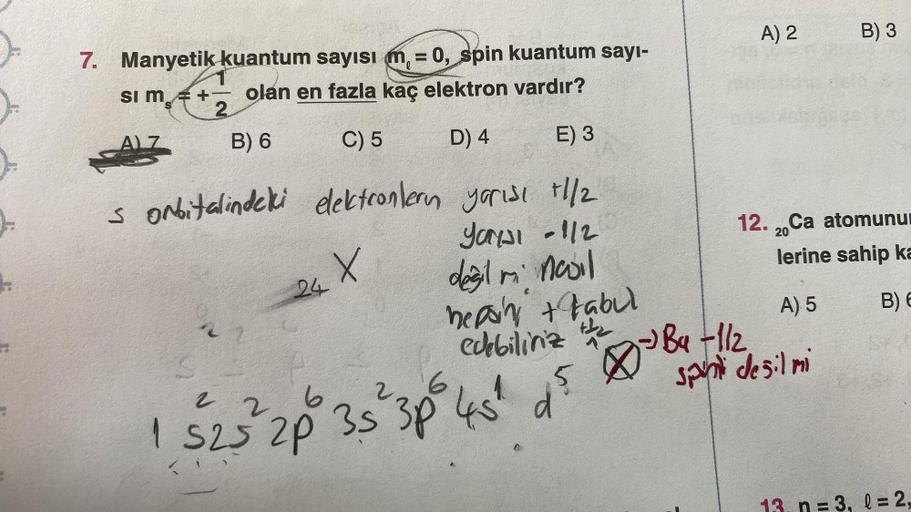 7. Manyetik kuantum sayısı mℓ = 0, spin kuantum sayı-
sı ms = + 1/2 olan en fazla kaç elektron vardır?
A) 7 B) 6 C) 5 D) 4 E) 3
s orbitalindeki elektronların yarısı +1/2
yarısı -1/2
değil mi nasıl
hepsini + kabul
edebiliriz
24 X
+1/2
X → Bu -1/2
spinli değil mi
1s² 2s² 2p⁶ 3s² 3p⁶ 4s¹ d⁵
A) 2 B) 3
12. ₂₀Ca atomunu
lerine sahip ka
A) 5 B) 6
13. n = 3, ℓ = 2,